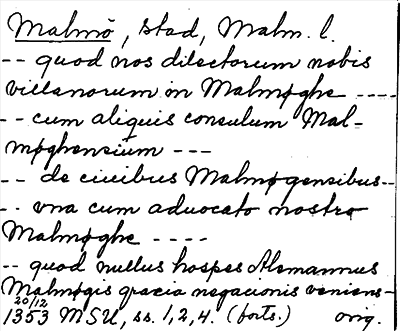 Malmö, stad, Malm. l.
-- quod nos dilectorum nobis
villanorum in Malmøghe ----
-- cum aliquis consulum Mal-
møghensium ---
-- de ciuibus Malmøgensibus--
-- vna cum aduocato nostro
Malmøghe ----
-- quod nullus hospes Alemannus
Malmøgis gracia negacionis veniens-
20/12
1353 MSU, ss. 1, 2, 4. (forts.) orig.